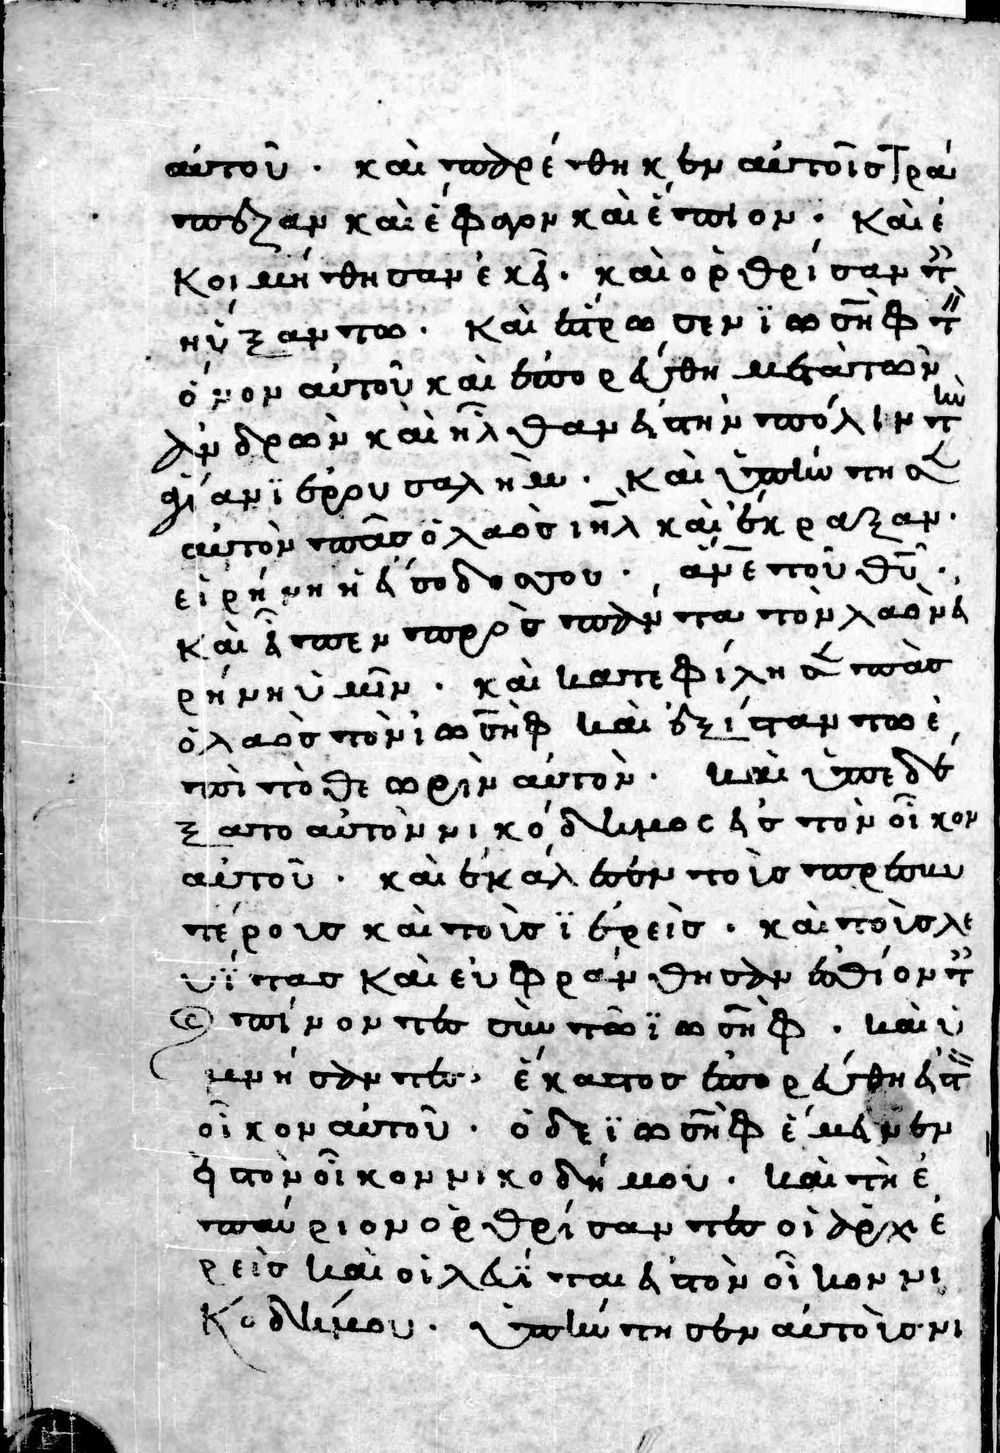 αὐτοῦ · καὶ παρέθηκεν αὐτοῖς τρά
πεζαν καὶ ἔφαγον καὶ ἔπιον · καὶ ἐ
κοιμήθησαν ἐκεῖ · καὶ ὀρθρίσαντ
ηὔξαντω · καὶ ἔστρωσεν ϊωσὴφ τ
ὄνον αὐτοῦ καὶ ἐπορεύθη μετὰ τῶν
ἀνδρῶν καὶ ἦλθαν εἰ τὴν πόλιν τὼ
ἁγίαν ϊερουσαλήμ · καὶ ὑπήντησ
αὐτὸν πᾶς ὁ λαὸς ιηλ καὶ ἔκραξαν ·
εἰρήνη ἡ εἴσοδος σου · τοῦ θυ ·
καὶ εἶπεν πρὸς πάντα τὸν λαὸν εἰ
ρήνη ὑμῖν · καὶ κατεφίλησ πᾶς
ὁ λαὸς τὸν ϊωσὴφ καὶ ἐξίσταντω ἐ
πὶ τὸ θεωρὶν αὐτὸν · καὶ ὑπεδέ
ξατο αὐτὸν νικόδημος εἰς τὸν οἶκον
αὐτοῦ · καὶ ἐκάλεσεν τοὺς πρεσβυ
τέρους καὶ τοὺς ϊερεὶς · καὶ τοὺς λε
υΐτας καὶ εὐφράνθησαν ἐσθίοντ
πίνοντες σὺν τῶ ϊωσὴφ · καὶ ὑ
μνήσαντες · ἕκαστος ἐπορεύθη εἰ τ
οἶκον αὐτοῦ · ὁ δε ϊωσὴφ ἔμεινεν
εἰ τὸν οἶκον νικοδήμου · καὶ τὴ ἐ
παύριον ὀρθρίσαντες οἱ ἀρχιε
ρεὶς καὶ οἱ λευΐται εἰ τὸν οἶκον νι
κοδήμου · ὑπήντησεν αὐτοὺς νι